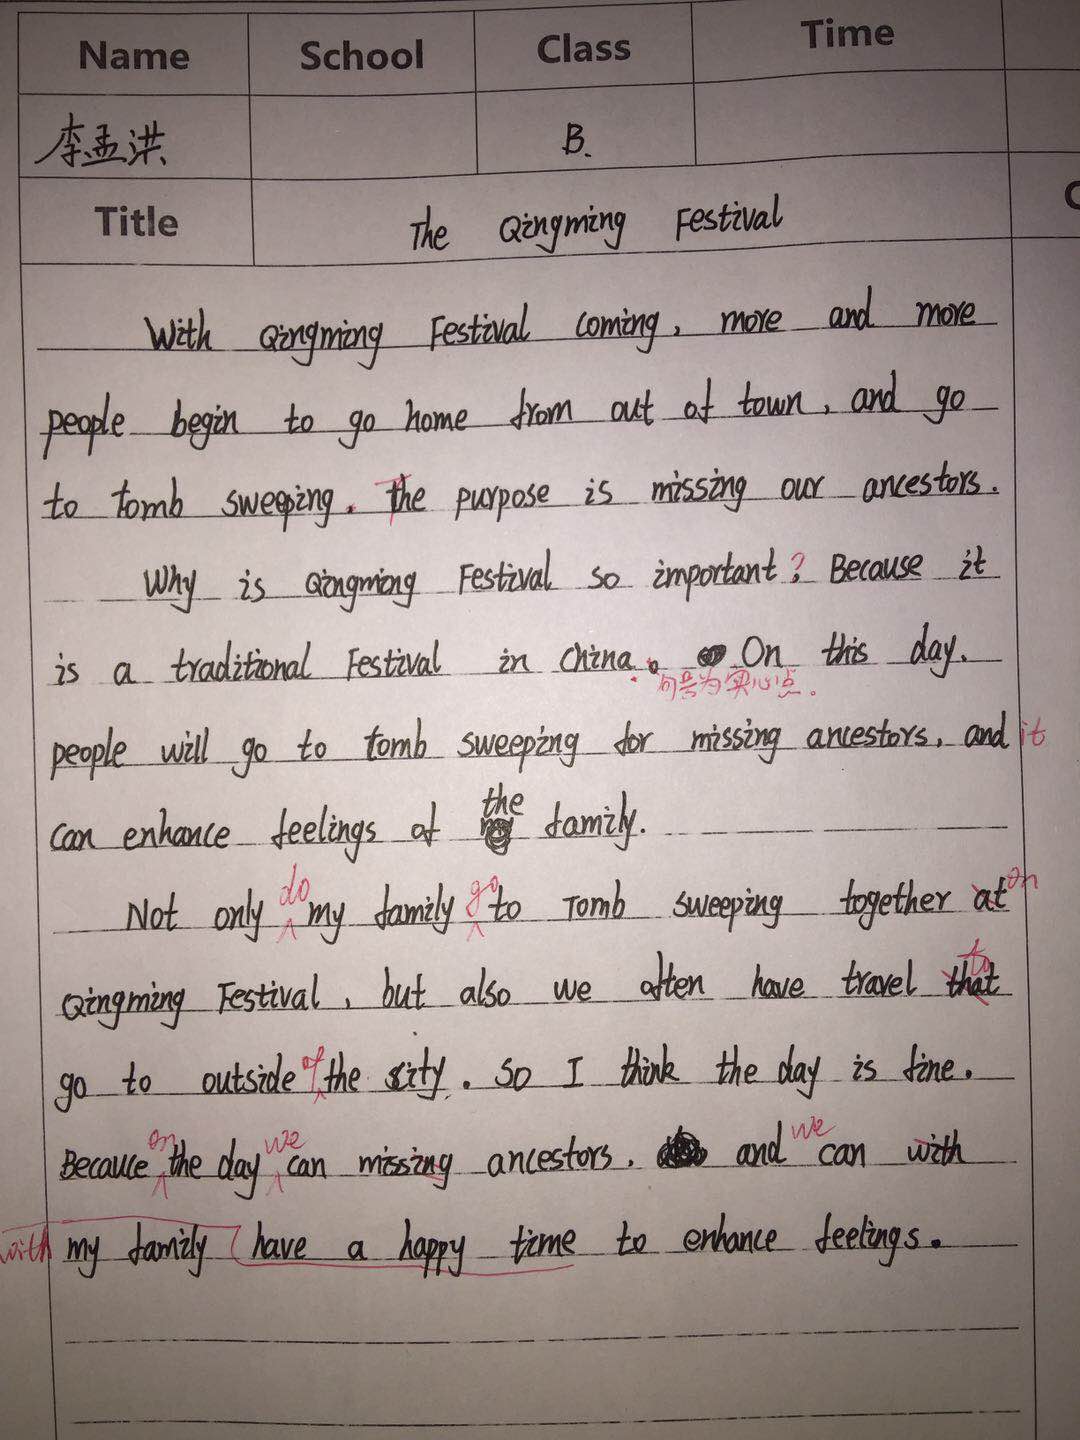 Name School Class Time
李孟洪 B.
Title The Qingming Festival
With Qingming Festival coming, more and more
people begin to go home from out of town, and go
to tomb sweeping. The purpose is missing our ancestors.
Why is Qingming Festival so important? Because it
is a traditional Festival in China. On this day,
句号为实心点.
people will go to tomb sweeping for missing ancestors, and it
can enhance feelings of the family.
Not only do my family go to Tomb sweeping together at on
Qingming Festival, but also we often have travel that to
go to outside of the city. So I think the day is fine.
Because on the day we can missing ancestors. and we can with
with my family have a happy time to enhance feelings.